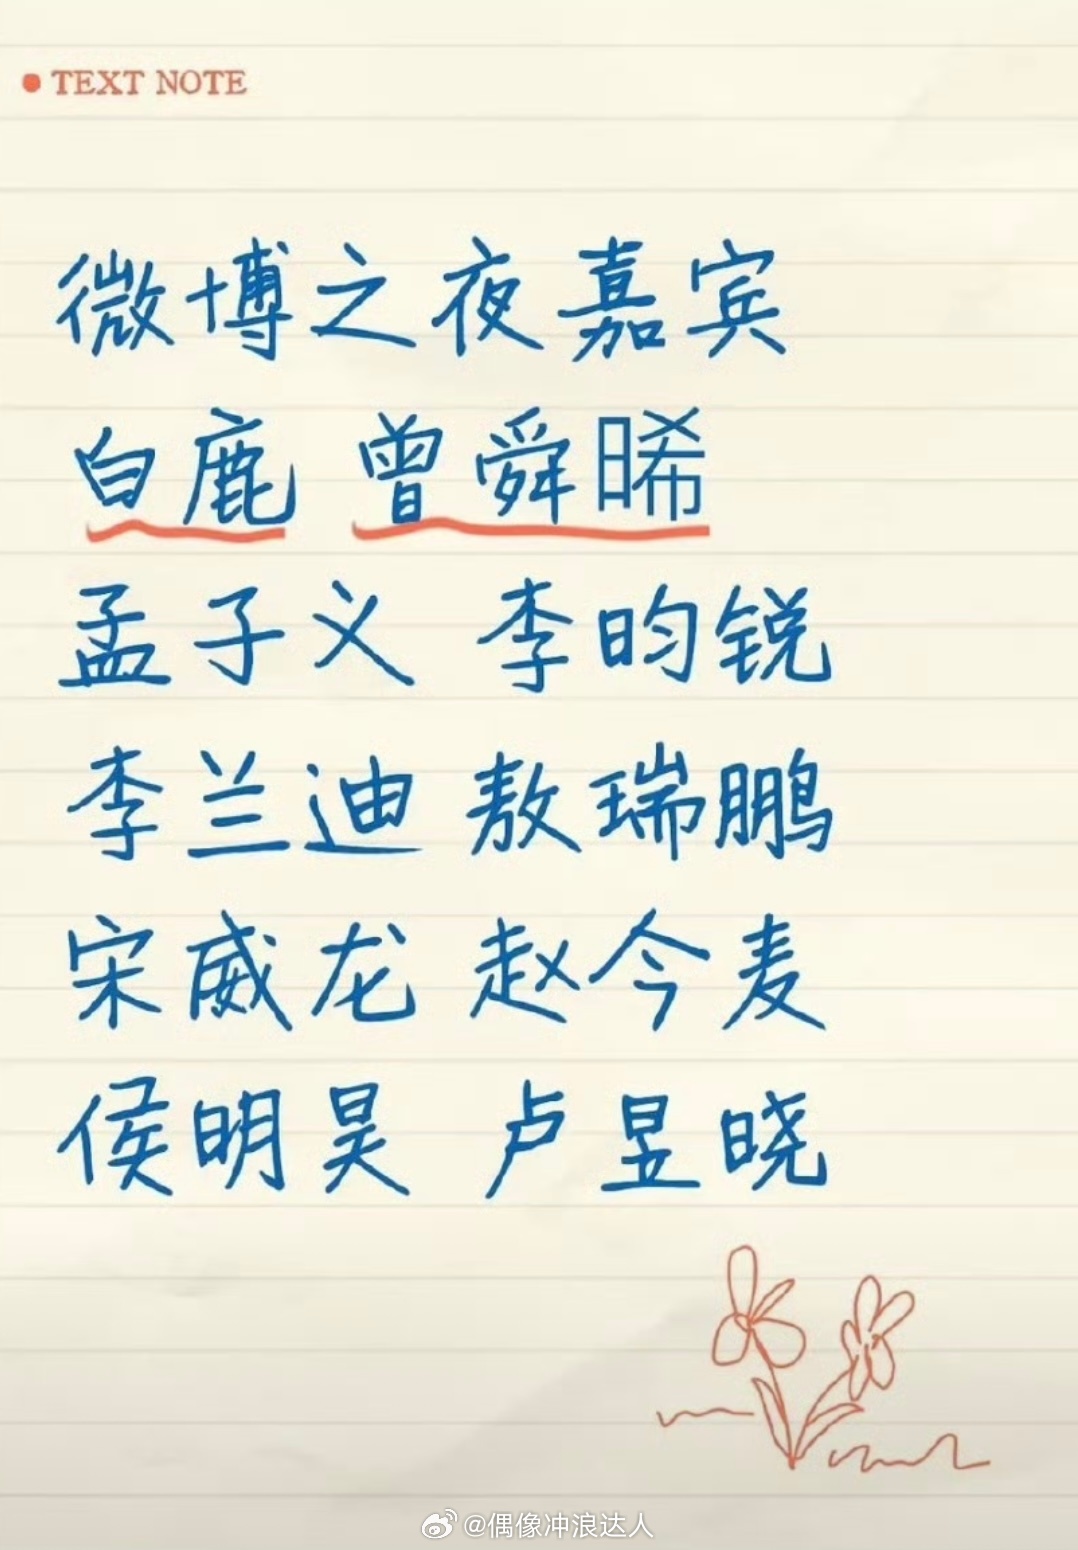 TEXT NOTE
微博之夜嘉宾
白鹿 曾舜晞
孟子义 李昀锐
李兰迪 敖瑞鹏
宋威龙 赵今麦
侯明昊 卢昱晓
@偶像冲浪达人